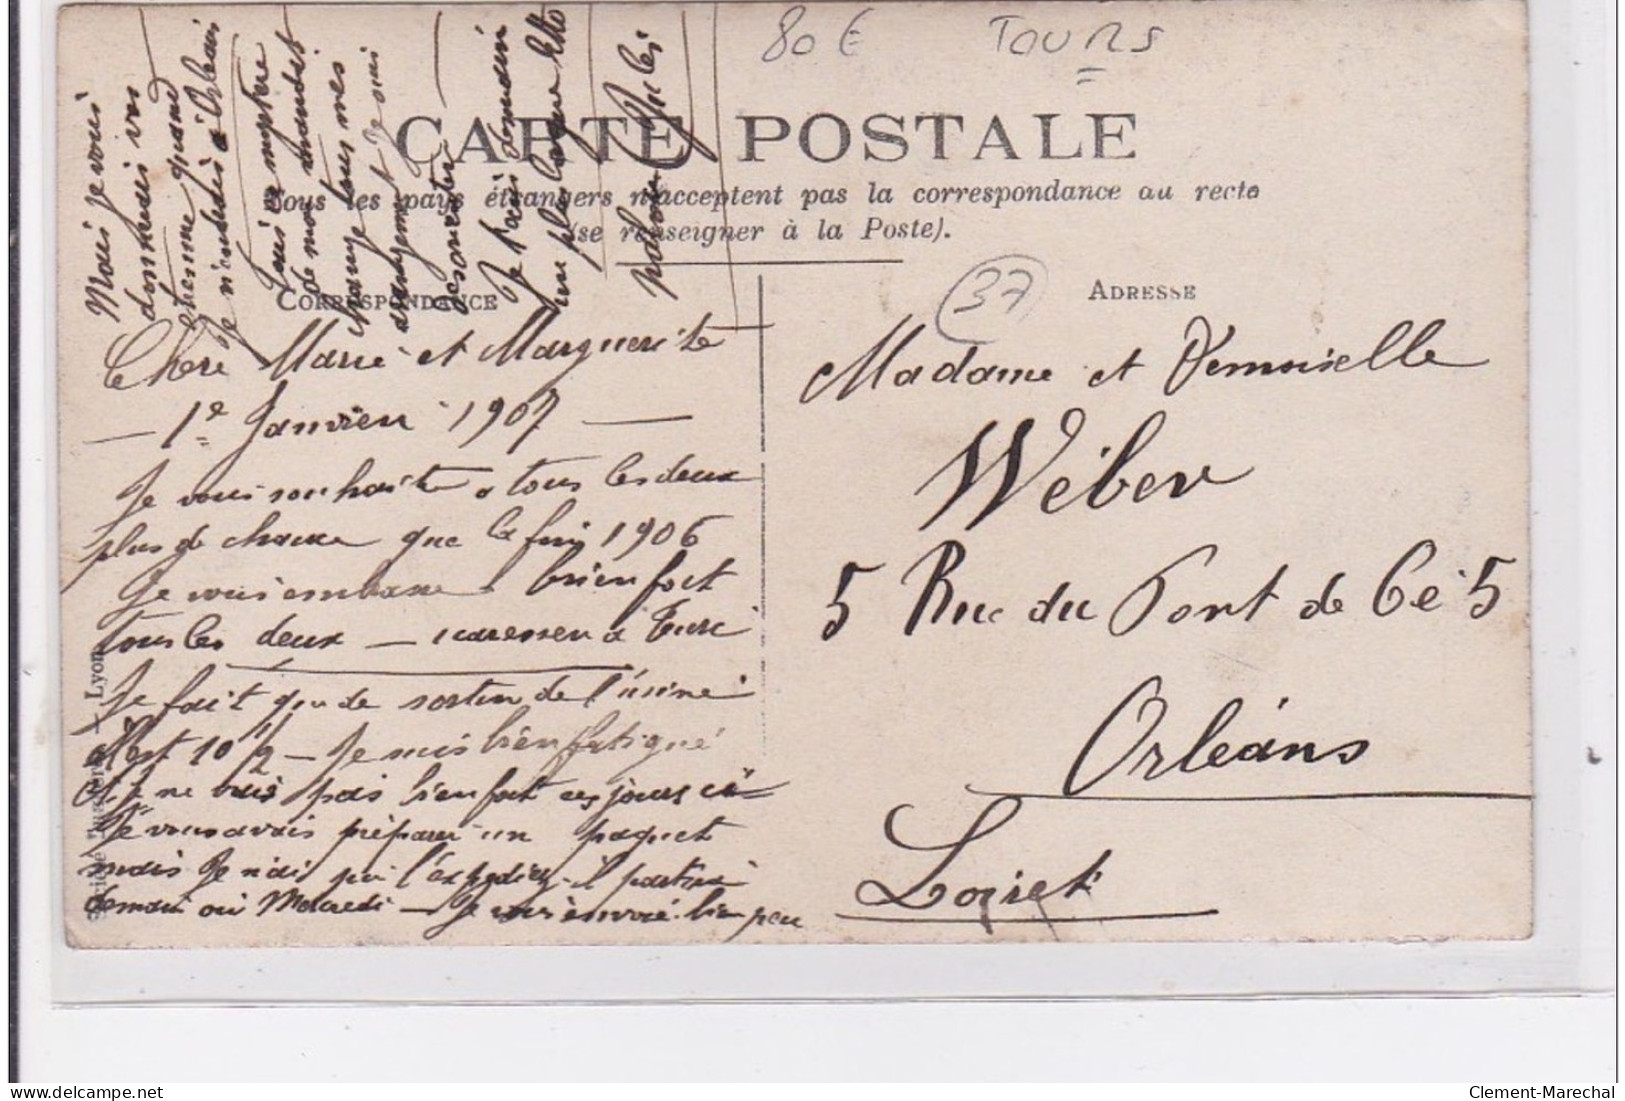 80 €
TOURS
CARTE POSTALE
Tous les pays étrangers n'acceptent pas la correspondance au recto
(se renseigner à la Poste).
37
CORRESPONDANCE
ADRESSE
Chère Marie et Marguerite
— 1e Janvier 1907 —
Je vous souhaite a tous les deux
plus de chance que la fin 1906
Je vous embrasse bien fort
tous les deux — caresser a
Je fait que de sortir de l'usine
il est 10 1/2 — Je suis bien fatigué
et je ne vais pas bien fort ces jours ci
Je vous avais préparer un paquet
mais Je n'ai pu l'expédier il partira
demain ou Mercredi — Je vous envoie bien peu
Mais je vous
donnerais vos
étrenne quand
je viendrais à Orléans
de mon
change tous mes
Je vais demain
un plus longue lettre
Madame et Demoiselle
Wéber
5 Rue du Pont de Cé 5
Orléans
Loiret
Lyon
Clement-Marechal